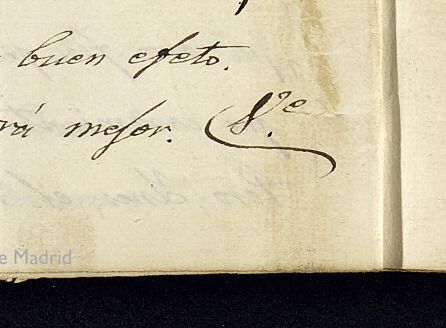 buen efeto.
rá mejor. V.e
e Madrid